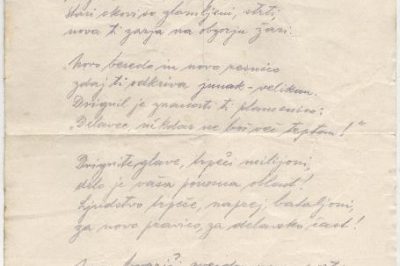 okovi so zlomljeni, strti,
nova ti zarja na obzorju žari.
Novo besedo in novo resnico
zdaj ti odkriva junak-velikan.
Dvignil je znanosti ti plamenico:
"Delavec, nikdar ne boš več teptan!"
Dvignite glave, trpeči milijoni,
delo je vaša ponosna oblast!
Ljudstvo trpeče, naprej bataljoni,
za novo pravico, za delavsko čast!